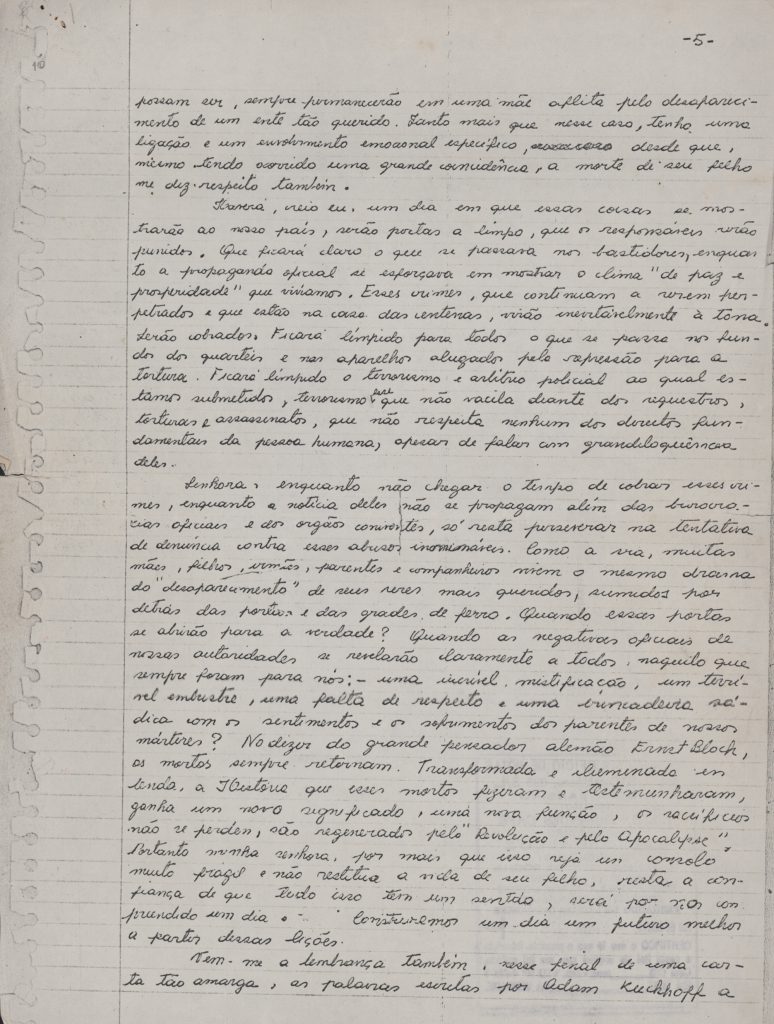 -5-
possam ser, sempre permanecerão em uma mãe aflita pelo desapareci-
mento de um ente tão querido. Tanto mais que nesse caso, tenho uma
ligação e um envolvimento emocional específico, desde que,
mesmo tendo ocorrido uma grande coincidência, a morte de seu filho
me diz respeito também.
Haverá, creio eu, um dia em que essas coisas se mos-
trarão ao nosso país, serão postas a limpo, que os responsáveis serão
punidos. Que ficará claro o que se passava nos bastidores, enquan-
to a propaganda oficial se esforçava em mostrar o clima "de paz e
prosperidade" que vivíamos. Esses crimes, que continuam a serem per-
petrados e que estão na casa das centenas, virão inevitavelmente à tona.
Serão cobrados. Ficará límpido para todos o que se passa nos fun-
dos dos quartéis e nos aparelhos alugados pela repressão para a
tortura. Ficará límpido o terrorismo e arbítrio policial ao qual es-
tamos submetidos, terrorismo este que não vacila diante dos sequestros,
torturas e assassinatos, que não respeita nenhum dos direitos fun-
damentais da pessoa humana, apesar de falar com grandiloquência
deles.
Senhora, enquanto não chegar o tempo de cobrar esses cri-
mes, enquanto a notícia deles não se propagam além das burocra-
cias oficiais e dos orgãos coniventes, só resta perseverar na tentativa
de denúncia contra esses abusos inomináveis. Como a sra, muitas
mães, filhos, irmãos, parentes e companheiros vivem o mesmo drama
do "desaparecimento" de seus seres mais queridos, sumidos por
detrás das portas e das grades de ferro. Quando essas portas
se abrirão para a verdade? Quando as negativas oficiais de
nossas autoridades se revelarão claramente a todos, naquilo que
sempre foram para nós: - uma incrível mistificação, um terrí-
vel embuste, uma falta de respeito e uma brincadeira sá-
dica com os sentimentos e os sofrimentos dos parentes de nossos
mártires? No dizer do grande pensador alemão Ernst Bloch,
os mortos sempre retornam. Transformada e iluminada em
lenda, a História que esses mortos fizeram e testemunharam,
ganha um novo significado, uma nova função, os sacrifícios
não se perdem, são regenerados pela "Revolução e pelo Apocalipse".
Portanto minha senhora, por mais que isso seja um consolo
muito frágil e não restitua a vida de seu filho, resta a con-
fiança de que tudo isso tem um sentido, será por nós com
preendido um dia. Construiremos um dia um futuro melhor
a partir dessas lições.
Vem-me a lembrança também, nesse final de uma car-
ta tão amarga, as palavras escritas por Adam Kuckhoff a